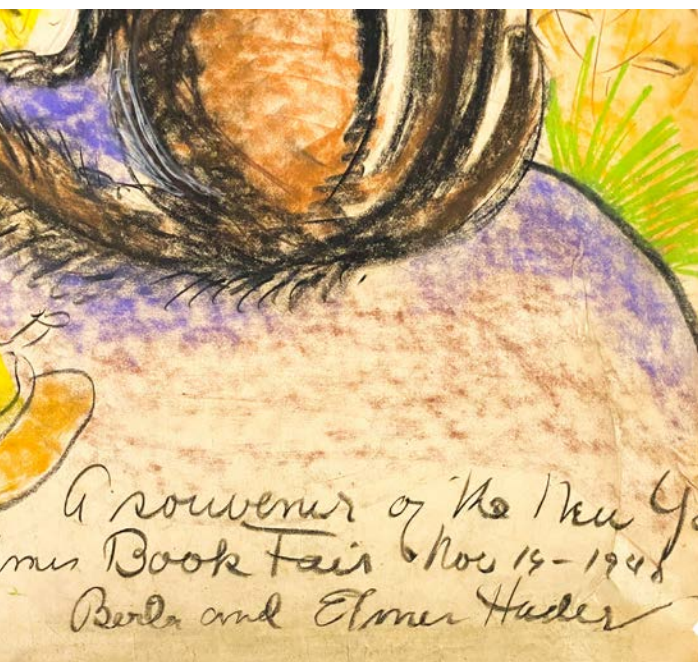 A souvenir of the New Yo
mes Book Fair • Nov 14-1948
Berta and Elmer Hader